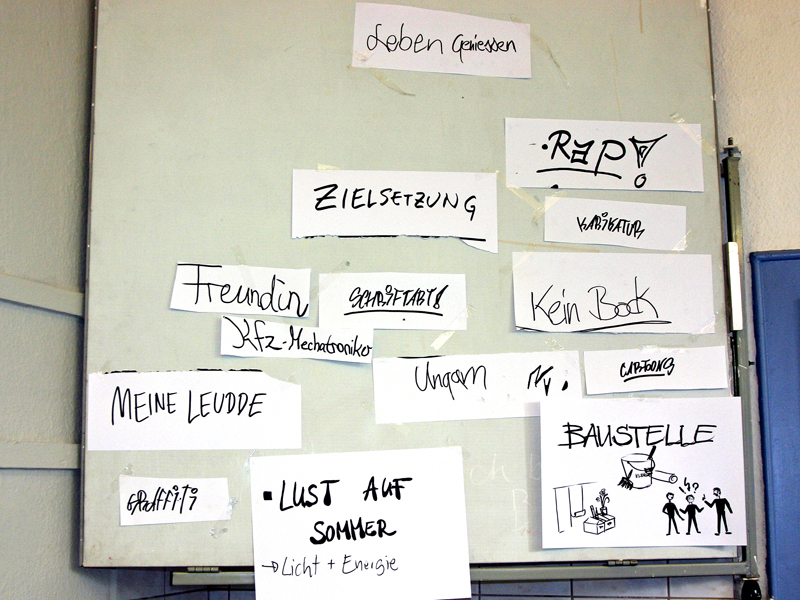 Leben Geniessen
•Rap!
ZIELSETZUNG
KARIKATUR
Freundin
SCHRIFTART!
Kein Bock
Kfz-Mechatroniker
Ungarn
CARTOONS
MEINE LEUDDE
BAUSTELLE
?
GRAFFITI
▪LUST AUF
SOMMER
→Licht + Energie